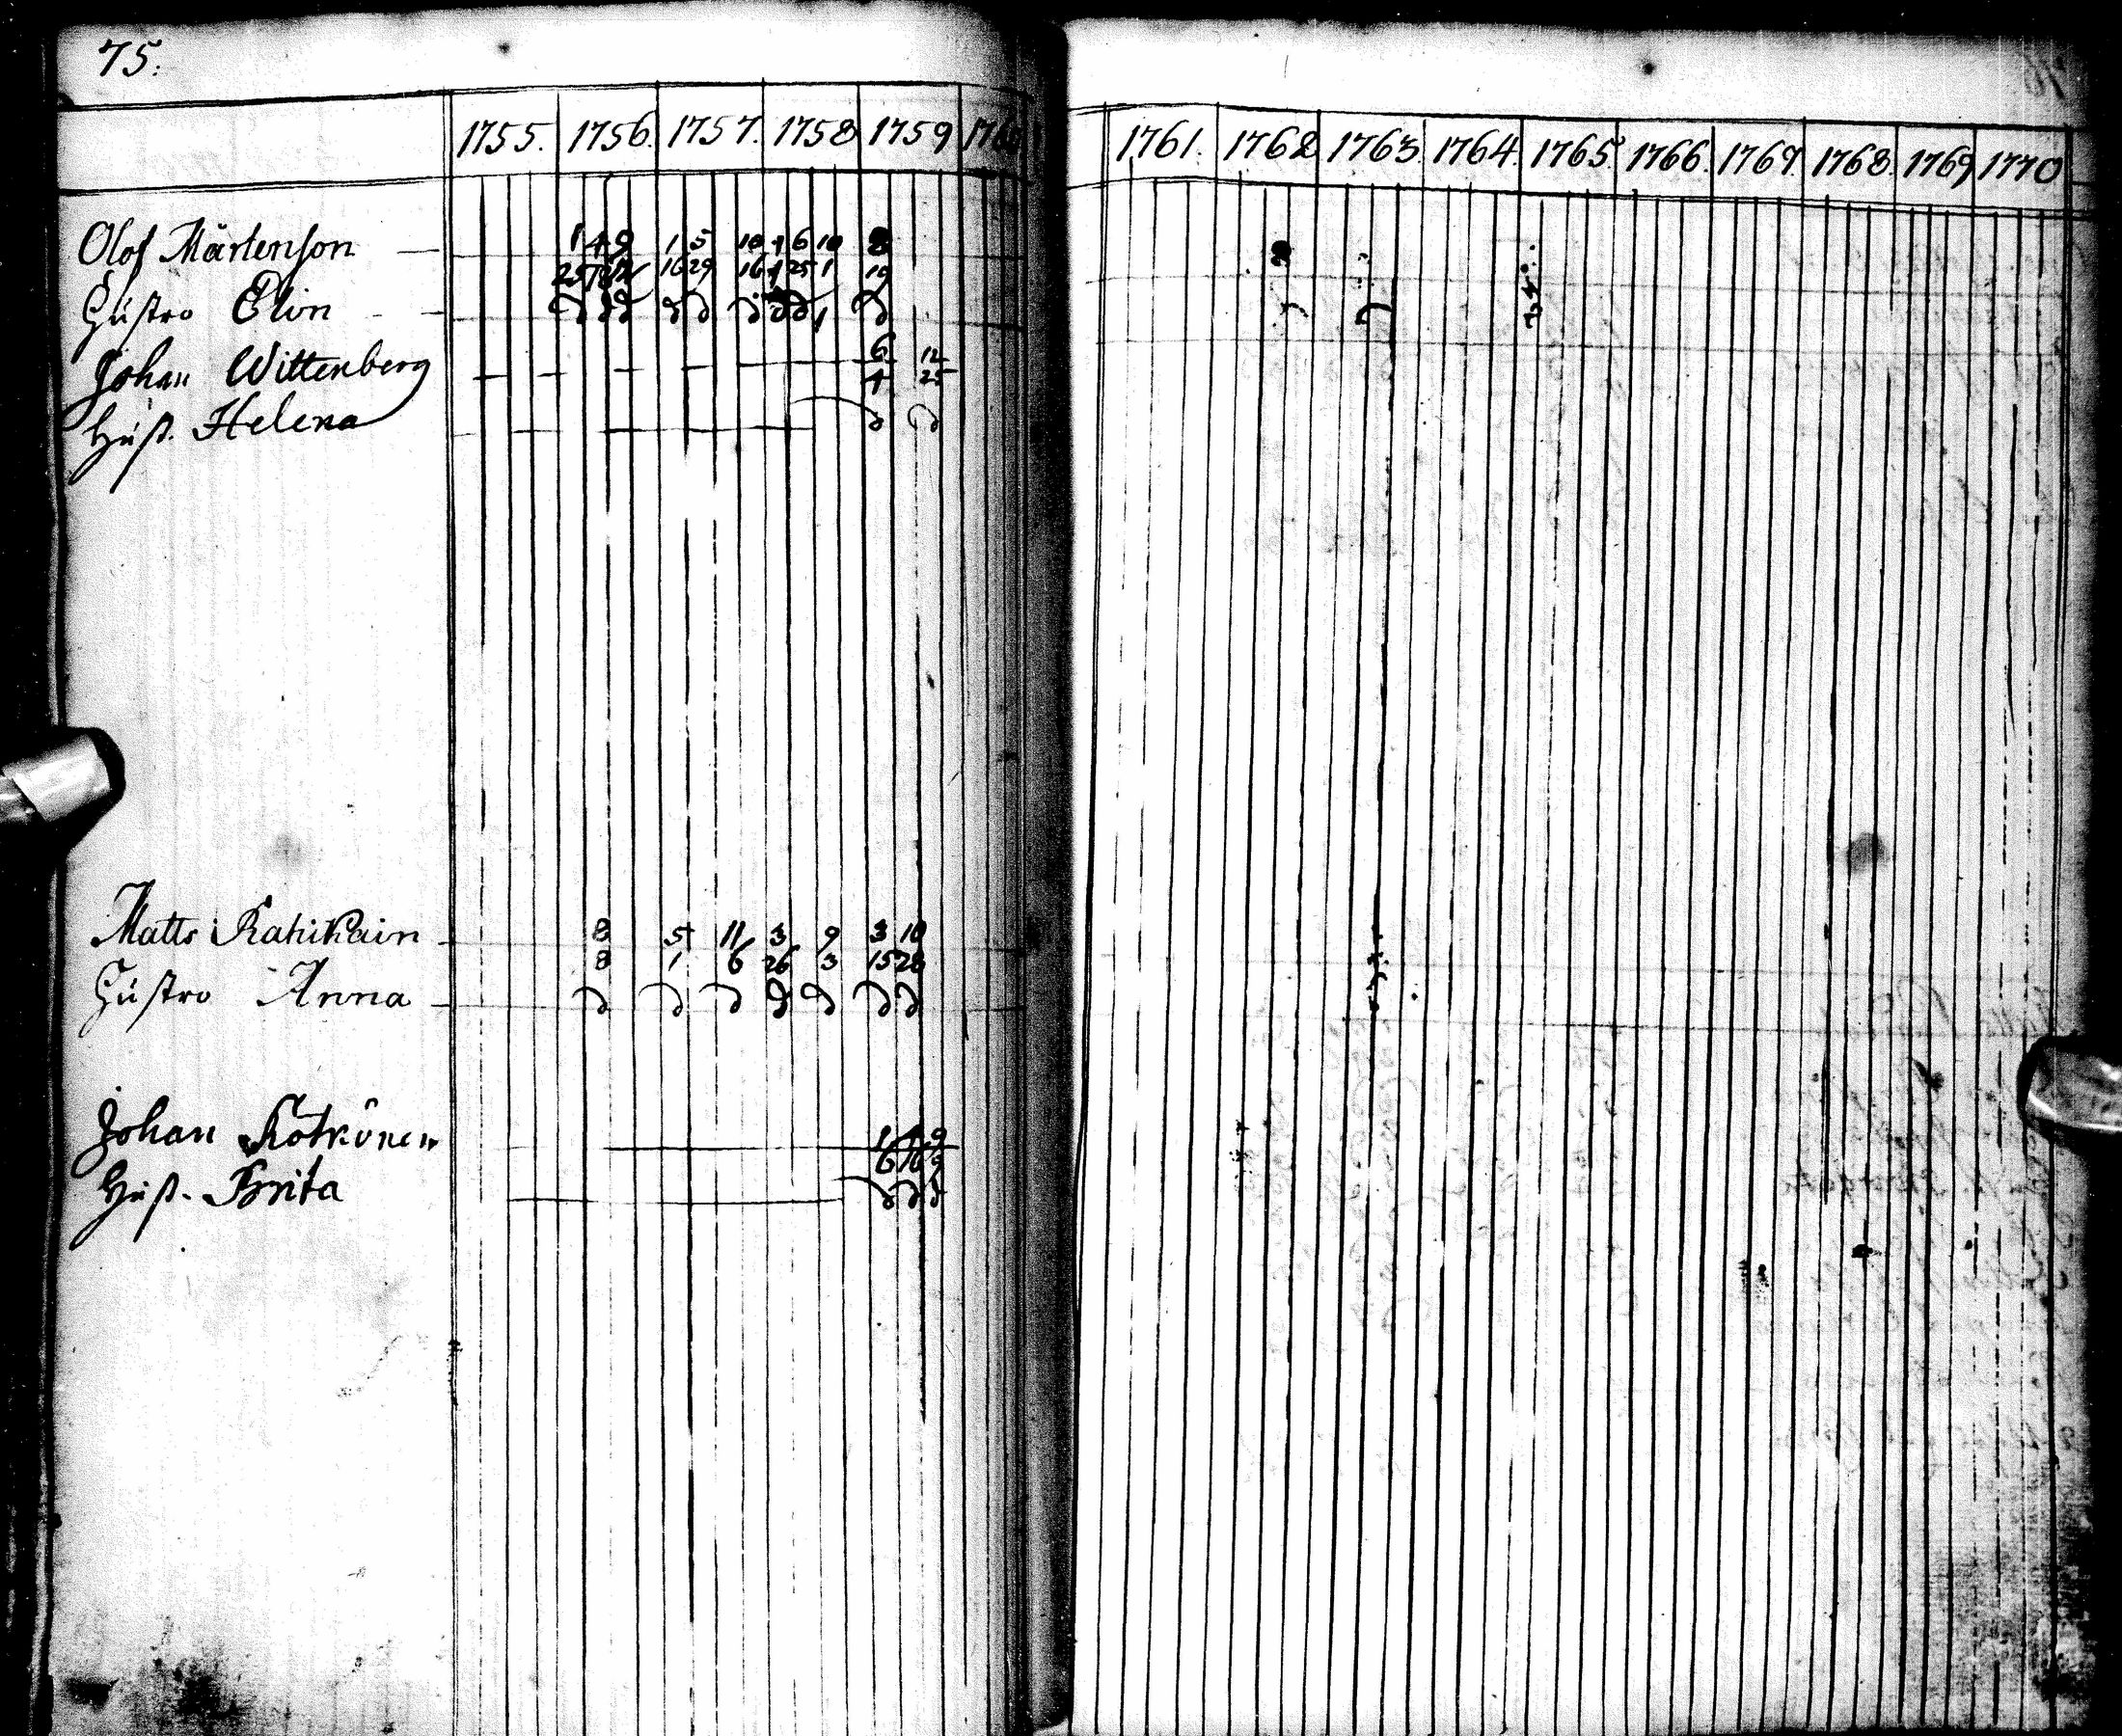 75.
1755. 1756. 1757. 1758 1759 1761. 1762 1763. 1764. 1765. 1766. 1767. 1768. 1769 1770
Olof Mårtenson 1 4 9 1 5 10 4 6 10 8
16 29 16 4 25 1 19
Hustro Elin
Johan Wittenberg 6 12
4 25
Hust. Helena
Matts 8 5 11 3 9 3 10
8 1 6 26 3 15 28
Hustro Anna
Johan 1 4 9
6 16 9
Hust. Brita